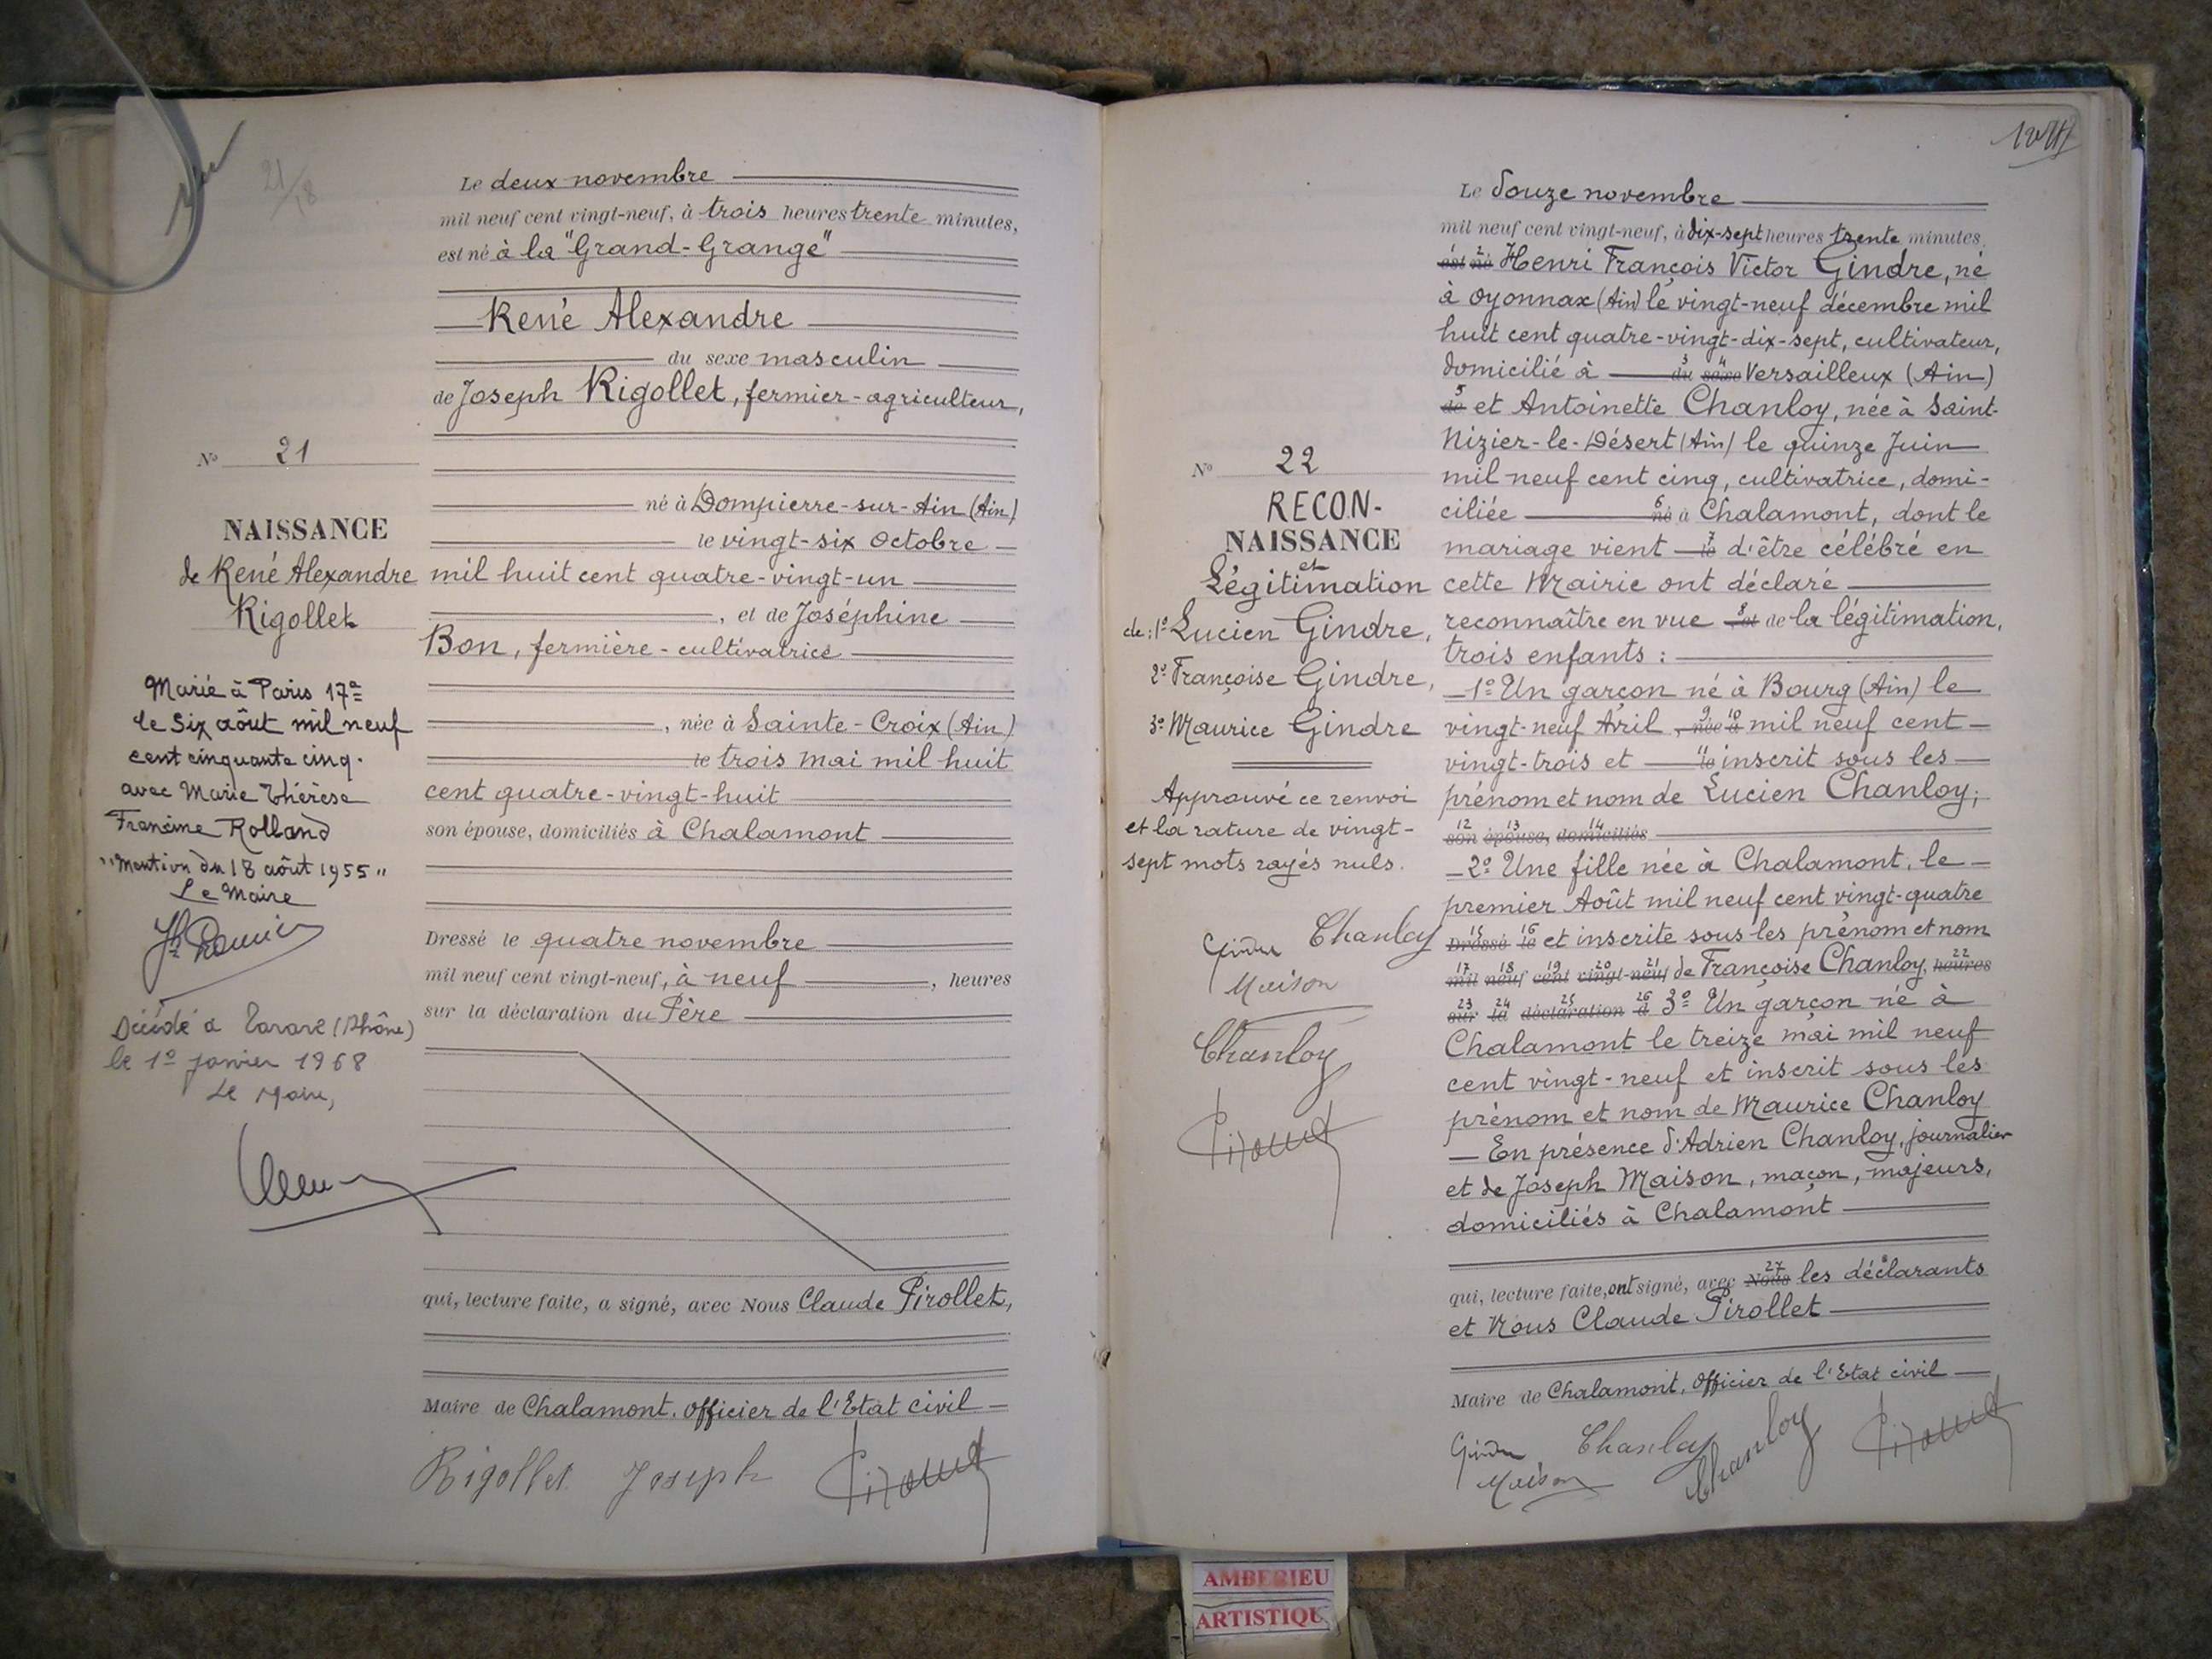 21/18
Le deux novembre
mil neuf cent vingt-neuf, à trois heures trente minutes,
est né à la "Grand-Grange"
René Alexandre
du sexe masculin
de Joseph Rigollet, fermier-agriculteur,
né à Dompierre-sur-Ain (Ain)
le vingt-six Octobre
mil huit cent quatre-vingt-un
, et de Joséphine
Bon, fermière-cultivatrice
, née à Sainte-Croix (Ain)
le trois mai mil huit
cent quatre-vingt-huit
son épouse, domiciliés à Chalamont
Dressé le quatre novembre
mil neuf cent vingt-neuf, à neuf , heures
sur la déclaration du Père
qui, lecture faite, a signé, avec Nous Claude Pirollet,
Maire de Chalamont, Officier de l'Etat civil
Rigollet Joseph
N° 21
NAISSANCE
de René Alexandre
Rigollet
Marié à Paris 17e
le Six août mil neuf
cent cinquante cinq.
avec Marie Thérèse
Francine Rolland
"Mention du 18 août 1955"
Le Maire
Décédé à Tarare (Rhône)
le 1er janvier 1968
Le Maire,
Le douze novembre
mil neuf cent vingt-neuf, à dix-sept heures trente minutes,
est né 2 Henri François Victor Gindre, né
à Oyonnax (Ain) le vingt-neuf décembre mil
huit cent quatre-vingt-dix-sept, cultivateur,
domicilié à 3 du 4 sexe Versailleux (Ain)
5 de et Antoinette Chanloy, née à Saint-
Nizier-le-Désert (Ain) le quinze Juin
mil neuf cent cinq, cultivatrice, domi-
ciliée 6 né à Chalamont, dont le
mariage vient 7 le d'être célébré en
cette Mairie ont déclaré
reconnaître en vue 8 et de la légitimation,
trois enfants :
1° Un garçon né à Bourg (Ain) le
vingt-neuf Avril , 9 née 10 à mil neuf cent
vingt-trois et 11 le inscrit sous les
prénom et nom de Lucien Chanloy;
12 son 13 épouse, 14 domiciliés
2° Une fille née à Chalamont, le
premier Août mil neuf cent vingt-quatre
15 Dressé 16 le et inscrite sous les prénom et nom
17 mil 18 neuf 19 cent 20 vingt- 21 neuf de Françoise Chanloy, 22 heures
23 sur 24 la 25 déclaration 26 d 3° Un garçon né à
Chalamont le treize mai mil neuf
cent vingt-neuf et inscrit sous les
prénom et nom de Maurice Chanloy
En présence d'Adrien Chanloy, journalier
et de Joseph Maison, maçon, majeurs,
domiciliés à Chalamont
qui, lecture faite, ont signé, avec 27 Nous les déclarants
et Nous Claude Pirollet
Maire de Chalamont, Officier de l'Etat civil
Gindre Chanloy Chanloy
Maison
N° 22
RECON-
NAISSANCE
et
Légitimation
de: 1° Lucien Gindre,
2° Françoise Gindre,
3° Maurice Gindre
Approuvé ce renvoi
et la rature de vingt-
sept mots rayés nuls.
Gindre Chanloy
Maison
Chanloy
AMBERIEU
ARTISTIQU